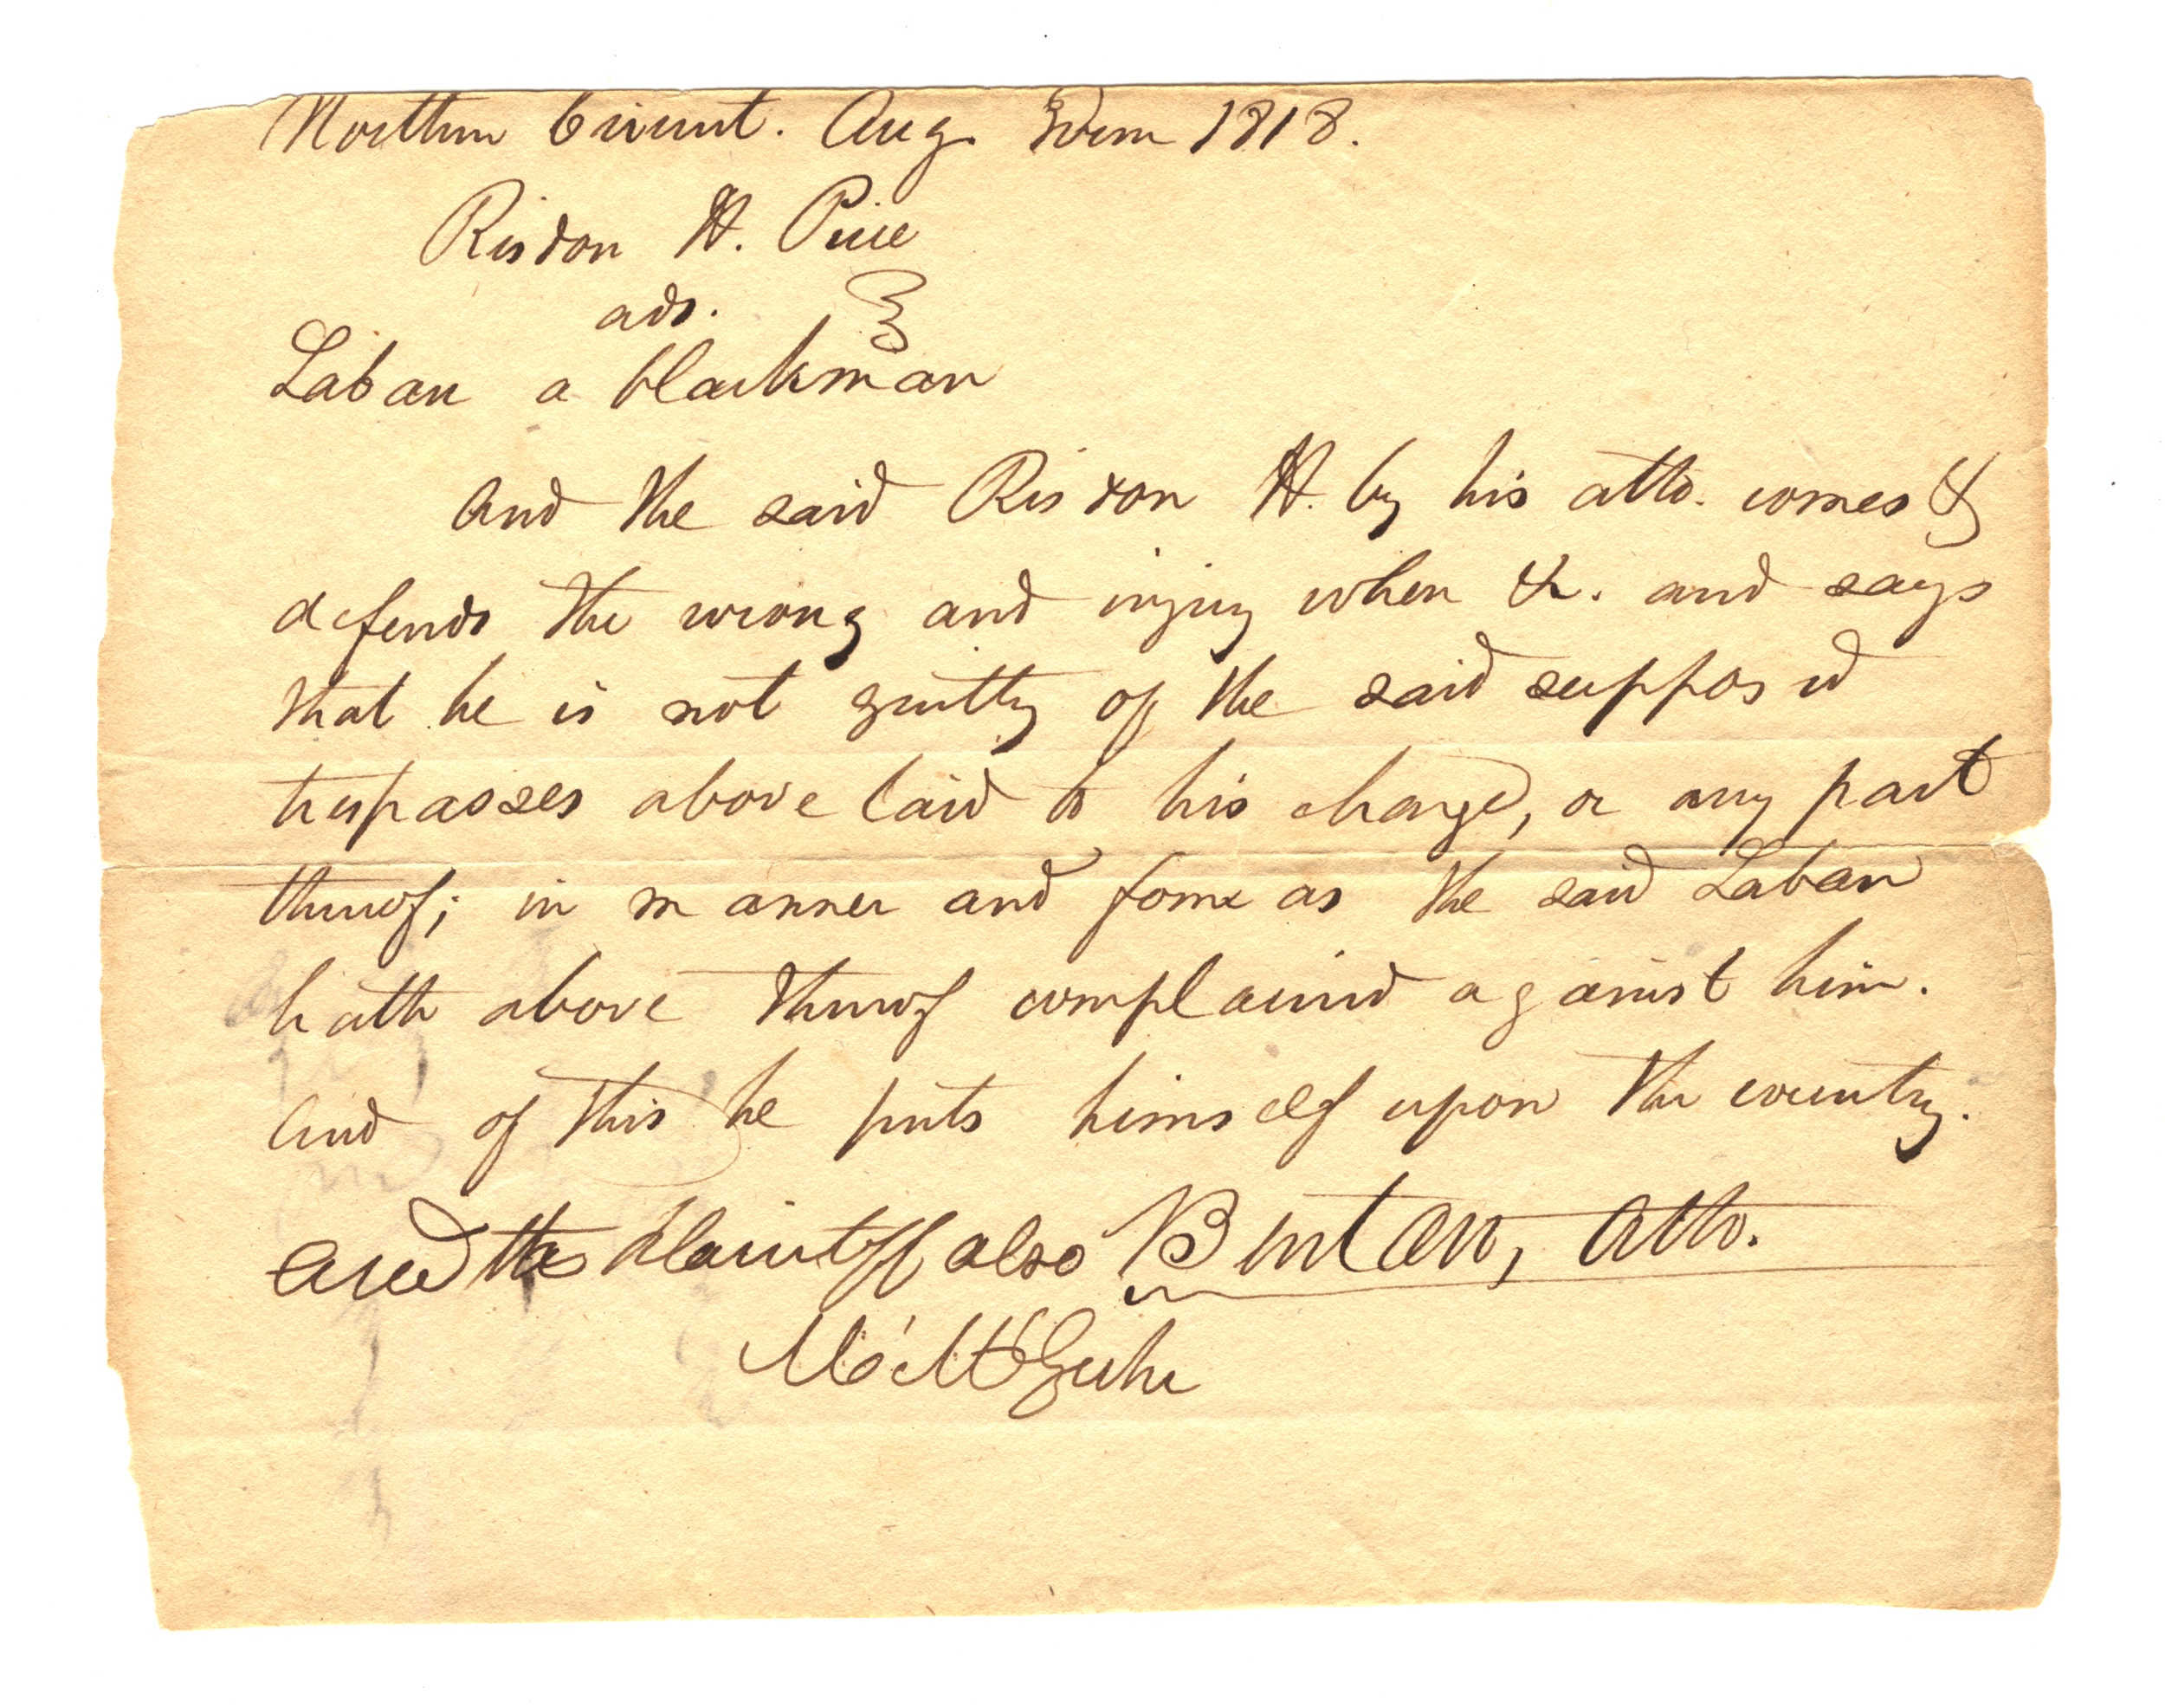 Northern Circuit. Aug. Term 1818.
Risdon H. Price
ads.
Laban a blackman
And the said Risdon H. by his atto. comes &
defends the wrong and injury when &. and says
that he is not guilty of the said supposed
trespasses above laid to his charge, or any part
thereof; in manner and form as the said Laban
hath above thereof complained against him.
And of this he puts himself upon the country.
and the plaintiff also Benton, Atto.